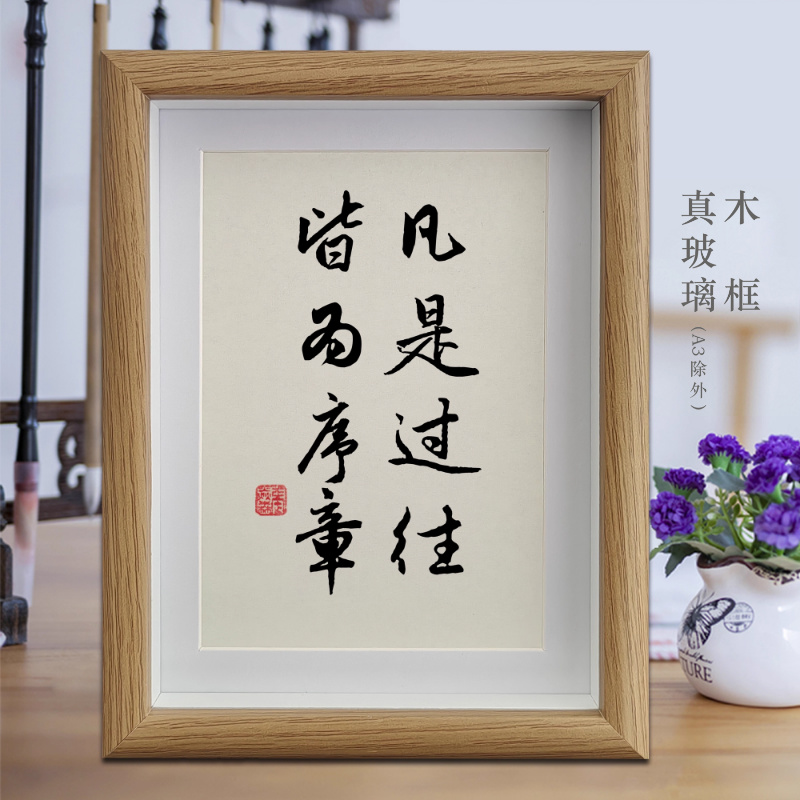 凡是过往
皆为序章
木框
真玻璃(A3除外)
TURE